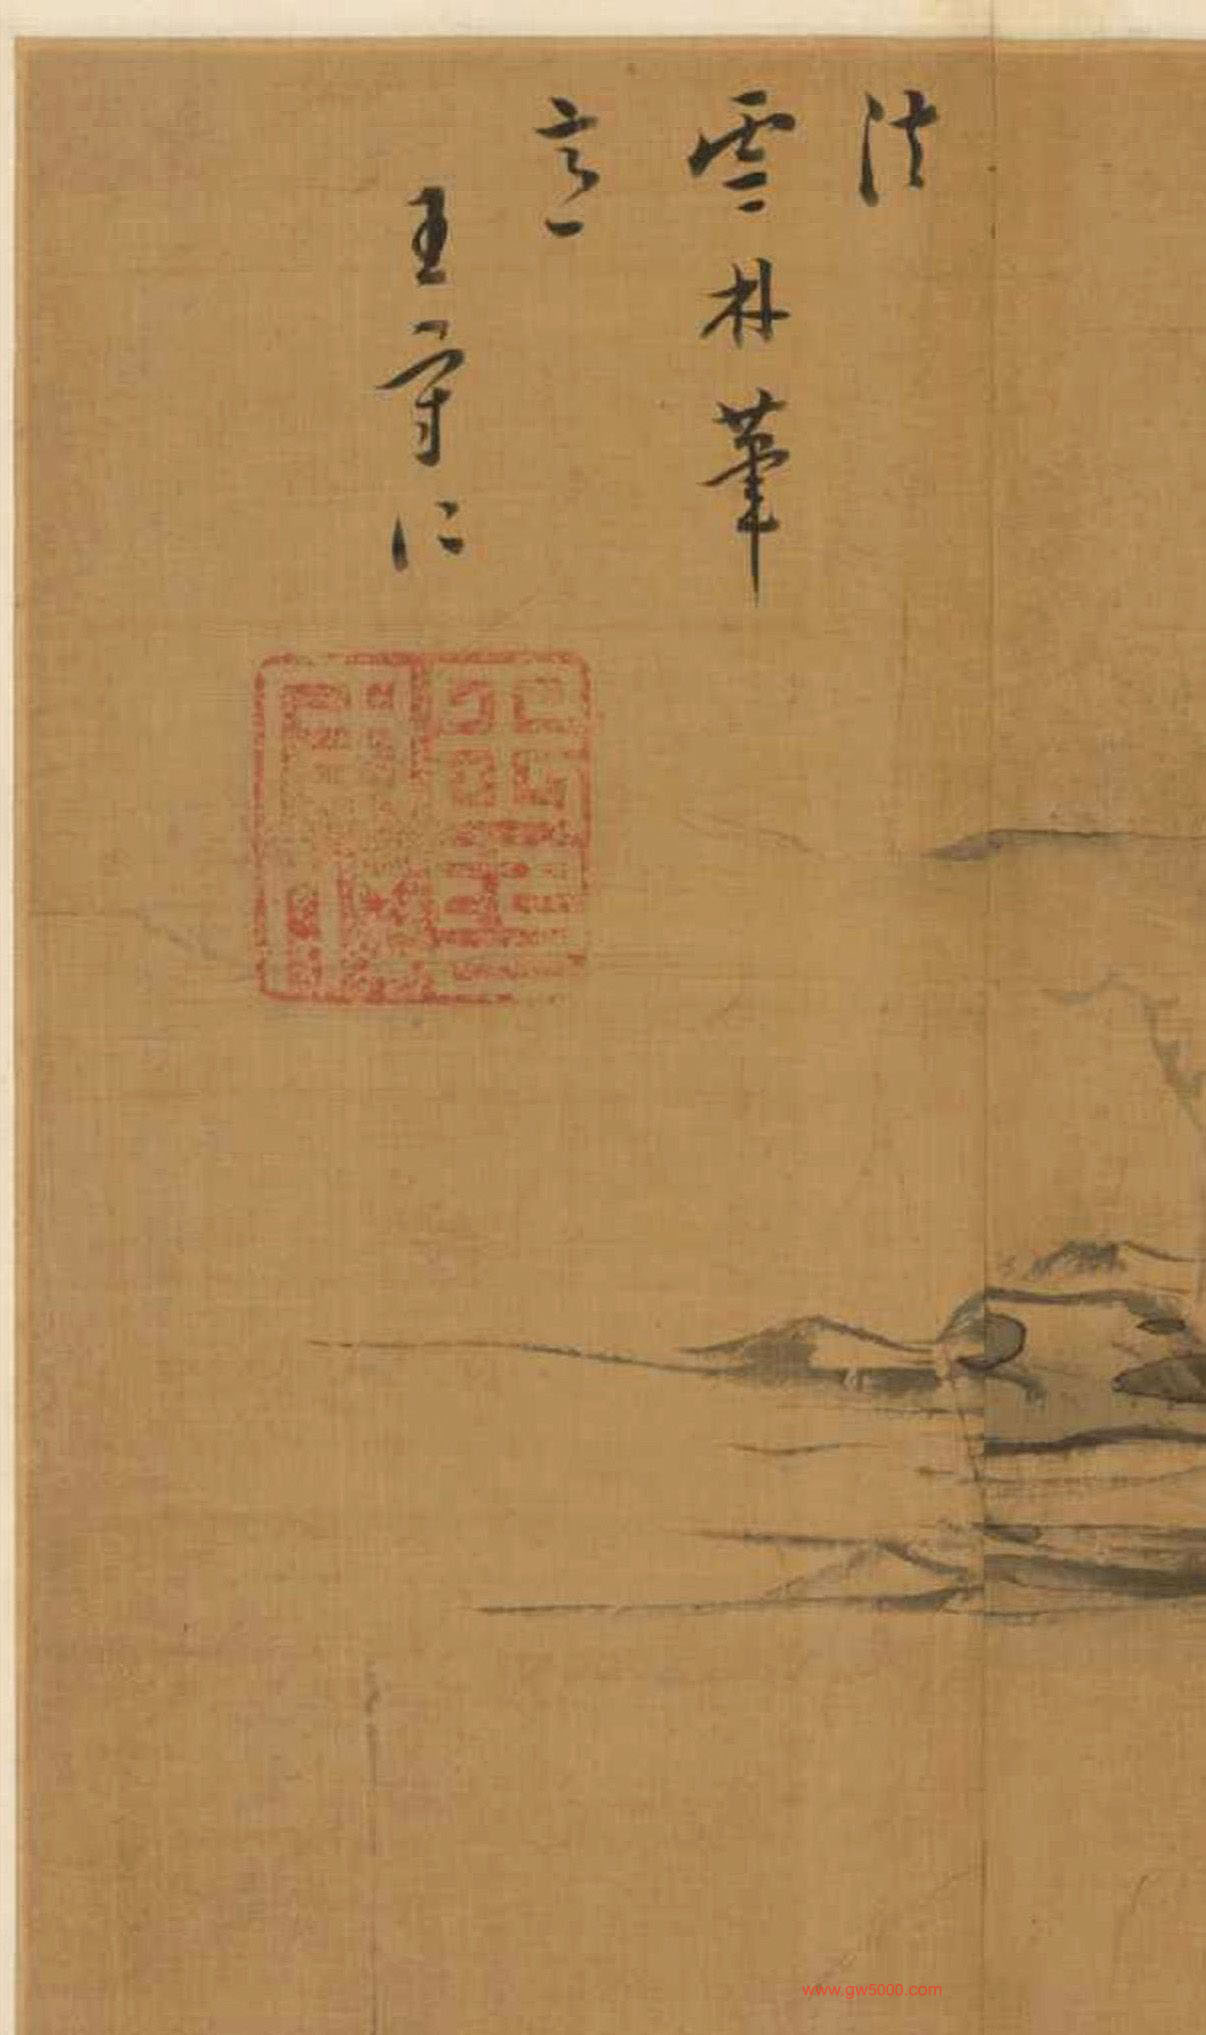 法
雲林筆
意
王守仁
www.gw5000.com